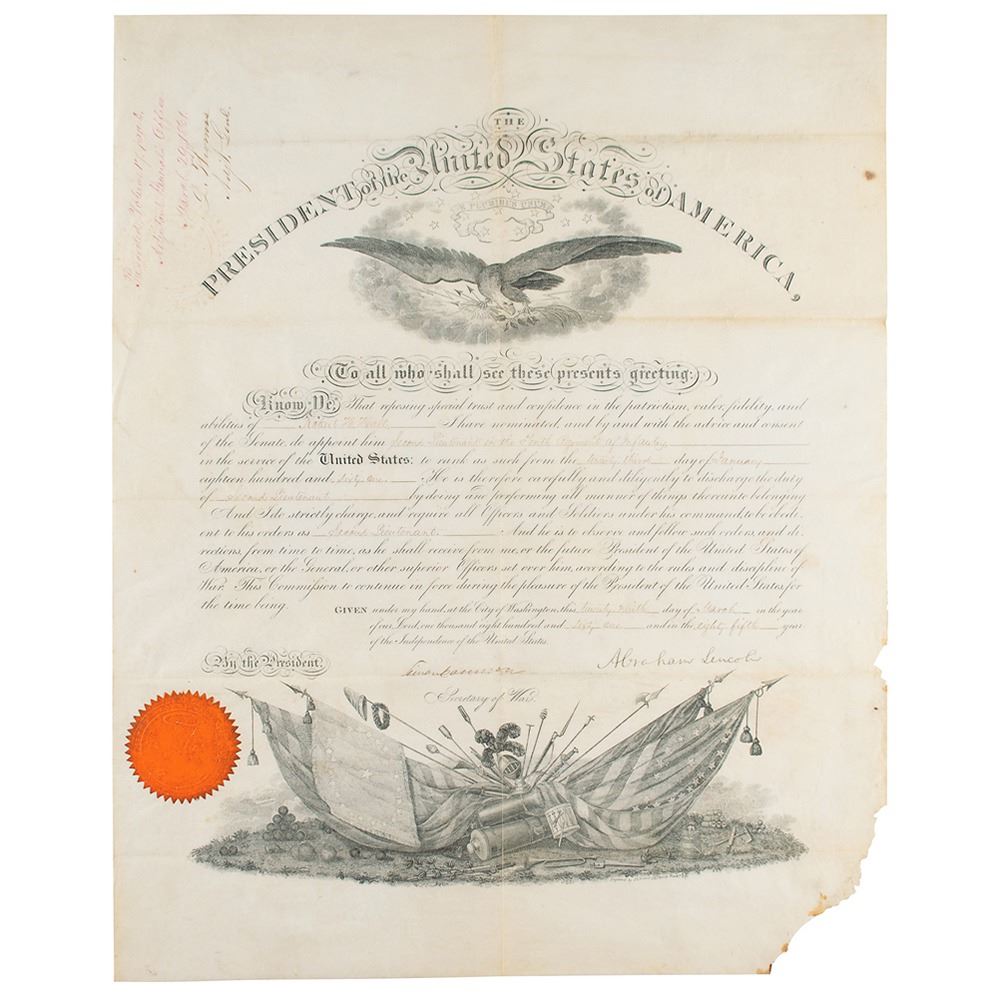 Recorded Volume
Adjutant General's Office
March 29, 1861.
L. Thomas
Adjt. Genl.
THE
PRESIDENT of the United States of AMERICA,
E PLURIBUS UNUM
To all who shall see these presents greeting:
Know Ye, That reposing special trust and confidence in the patriotism, valor, fidelity, and
abilities of Robert H. Hall I have nominated, and by and with the advice and consent
of the Senate, do appoint him Second Lieutenant in the Tenth Regiment of Infantry
in the service of the United States: to rank as such from the twenty third day of January
eighteen hundred and sixty one. He is therefore carefully and diligently to discharge the duty
of Second Lieutenant by doing and performing all manner of things thereunto belonging
And I do strictly charge, and require all Officers and Soldiers under his command, to be obedi-
ent to his orders as Second Lieutenant. And he is to observe and follow such orders, and di-
rections, from time to time, as he shall receive from me, or the future President of the United States of
America, or the General, or other superior Officers set over him, according to the rules and discipline of
War. This Commission to continue in force during the pleasure of the President of the United States, for
the time being.
GIVEN under my hand, at the City of Washington, this twenty ninth day of March in the year
of our Lord, one thousand eight hundred and sixty one and in the eighty fifth year
of the Independence of the United States.
By the President.
Abraham Lincoln
Simon Cameron
Secretary of War.